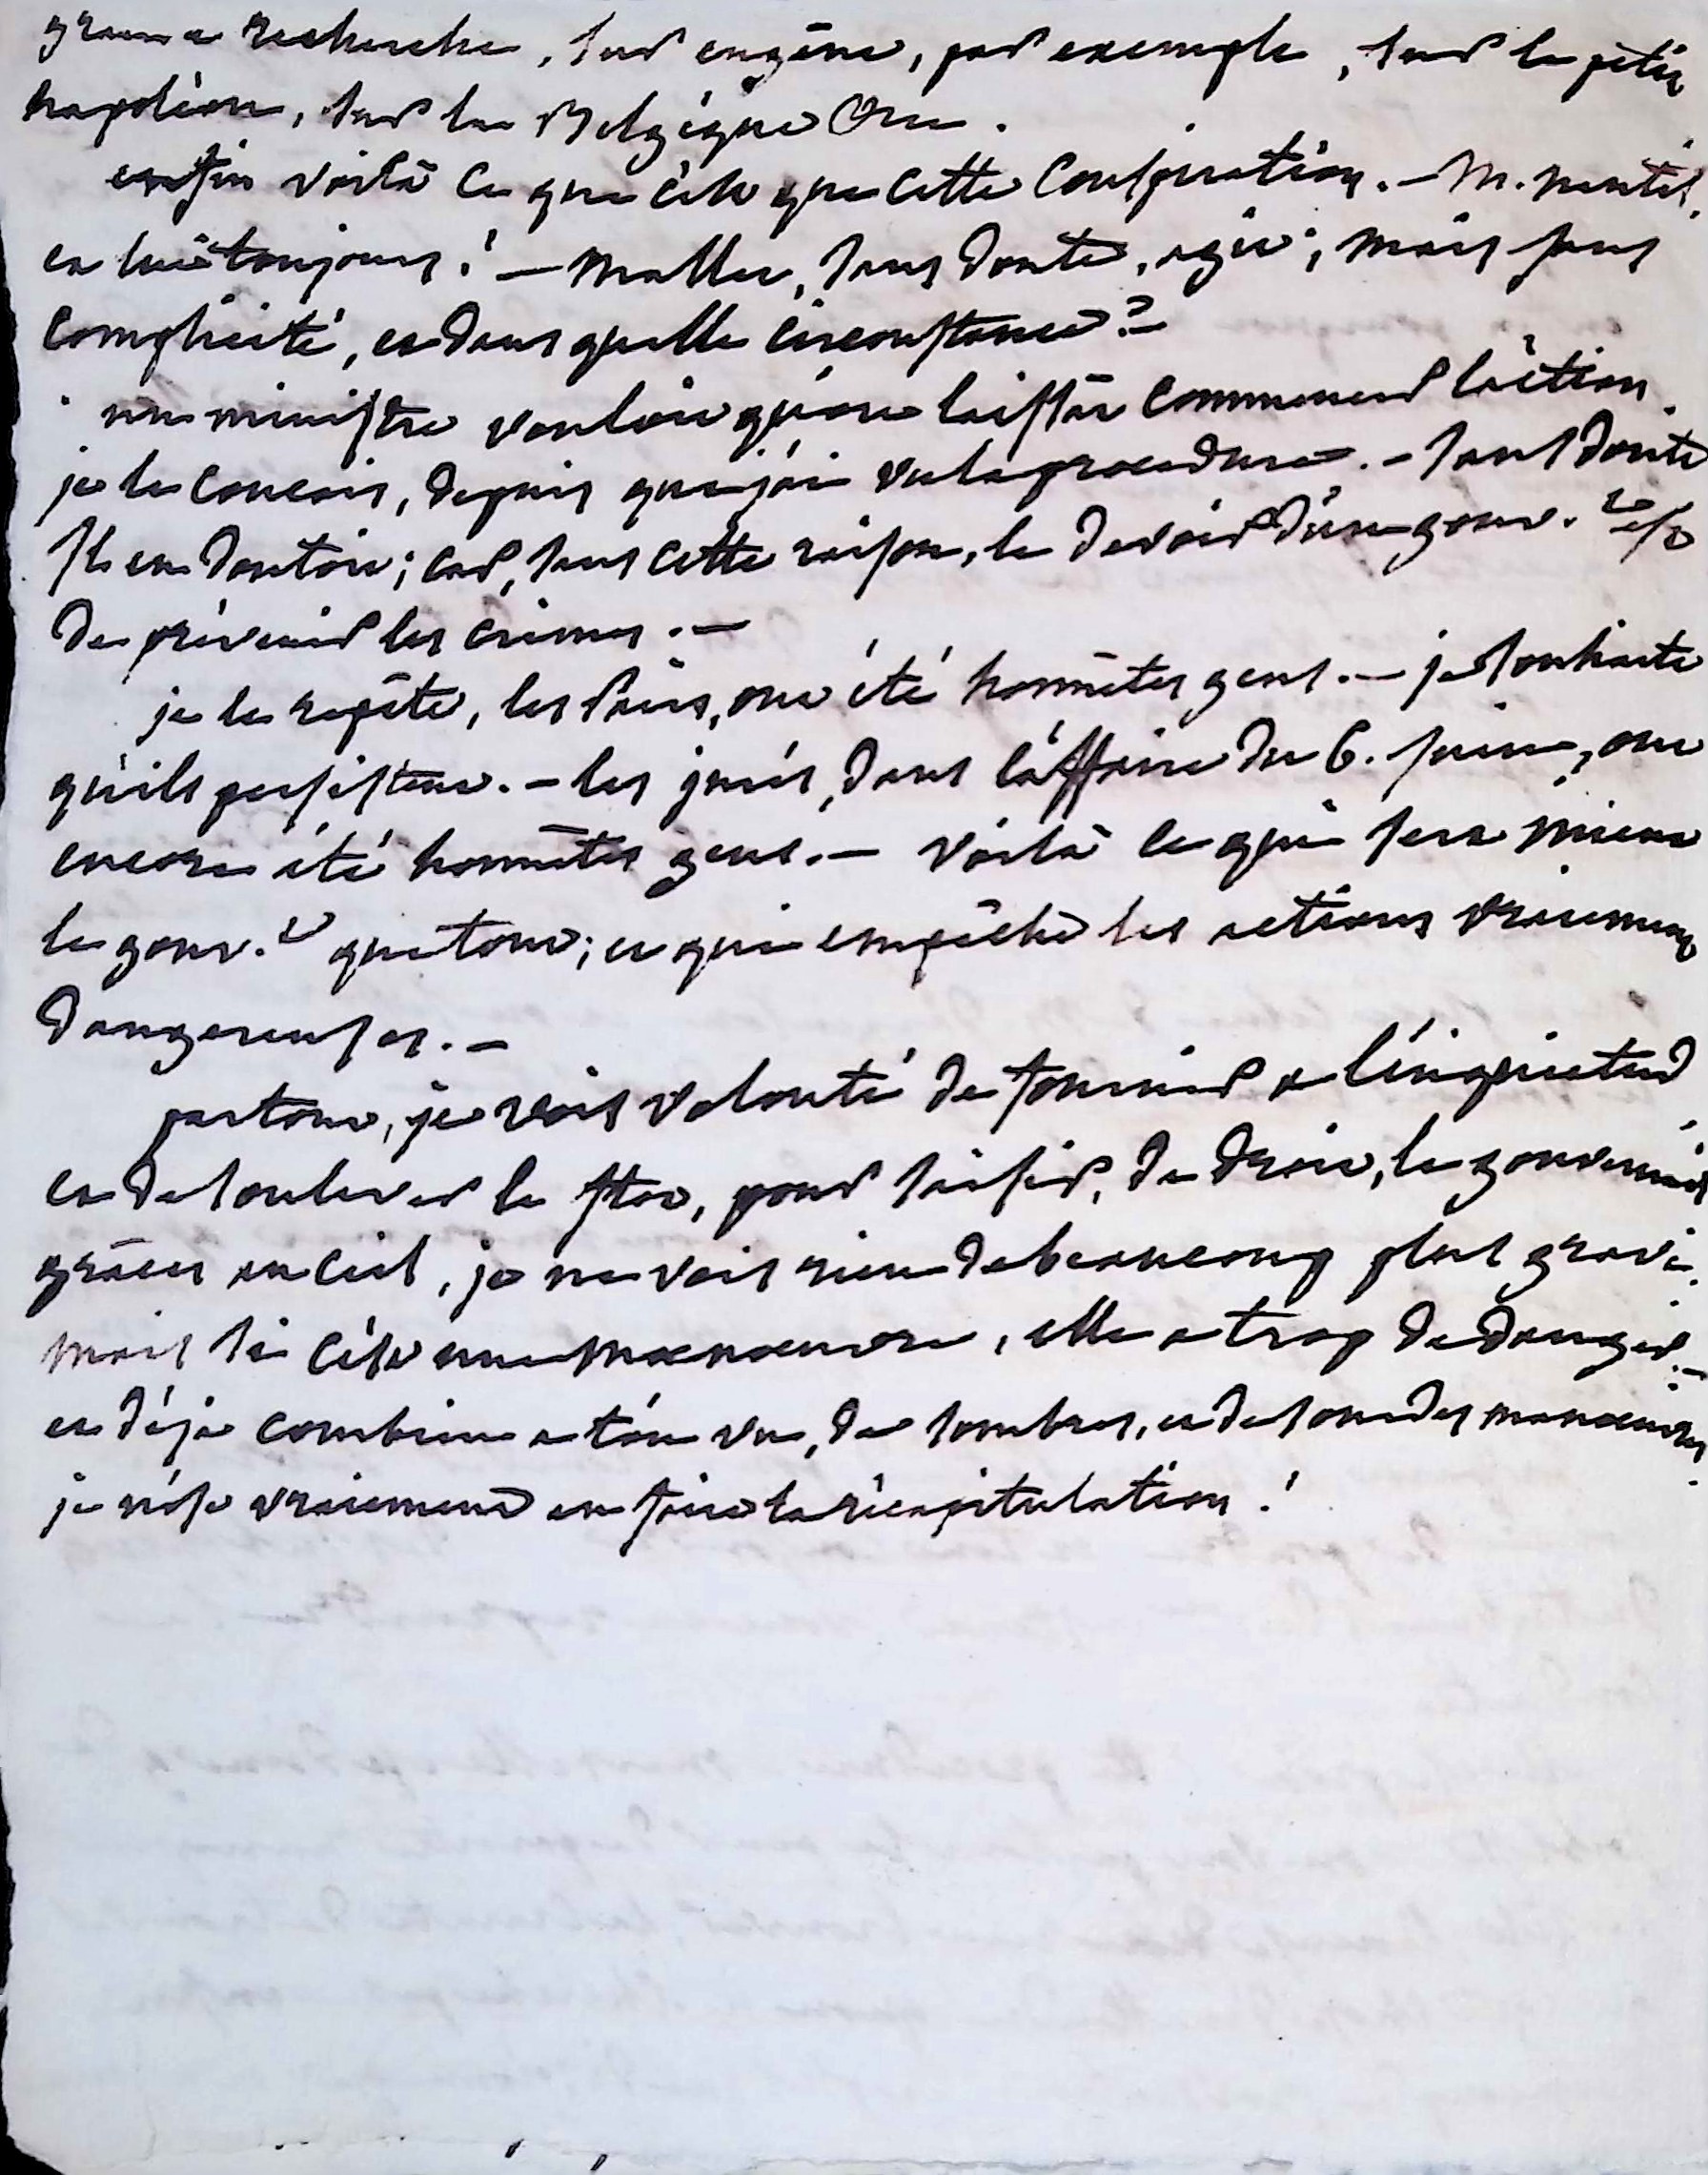 recherche, sur eugène, par exemple, sur le petit
napoléon, sur la Belgique &ce.
enfin voilà ce que c'est que cette conspiration. — M.
et lui toujours! — Maller, sans doute, agit; mais sans
complicité, et dans quelle circonstance? —
un ministre vouloir qu'on laissât commencer l'action.
je le concois, depuis que j'ai vu la procedure. — sans doute
il en doutoit; car, sans cette raison, le devoir d'un gouv.t est
de prévenir les crimes. —
je le repète, les Pairs, ont été honnêtes gens. — je souhaite
qu'ils persistent. — les jurés, dans l'affaire du 6. juin, ont
encore été honnêtes gens. — voilà ce qui sert mieux
le gouv.t que tout; et qui empêche les actions vraiment
dangereuses. —
partout, je vois volonté de fournir a l'inquietude
et de soulever le flot, pour saisir, de droit, le gouvernail
grâces au ciel, je ne vois rien de beaucoup plus grave.
mais si c'est une manoeuvre, elle a trop de danger. —
et déjà combien a-t-on vu, de sombres, et de sourdes manoeuvres
je n'ose vraiement en faire la récapitulation!